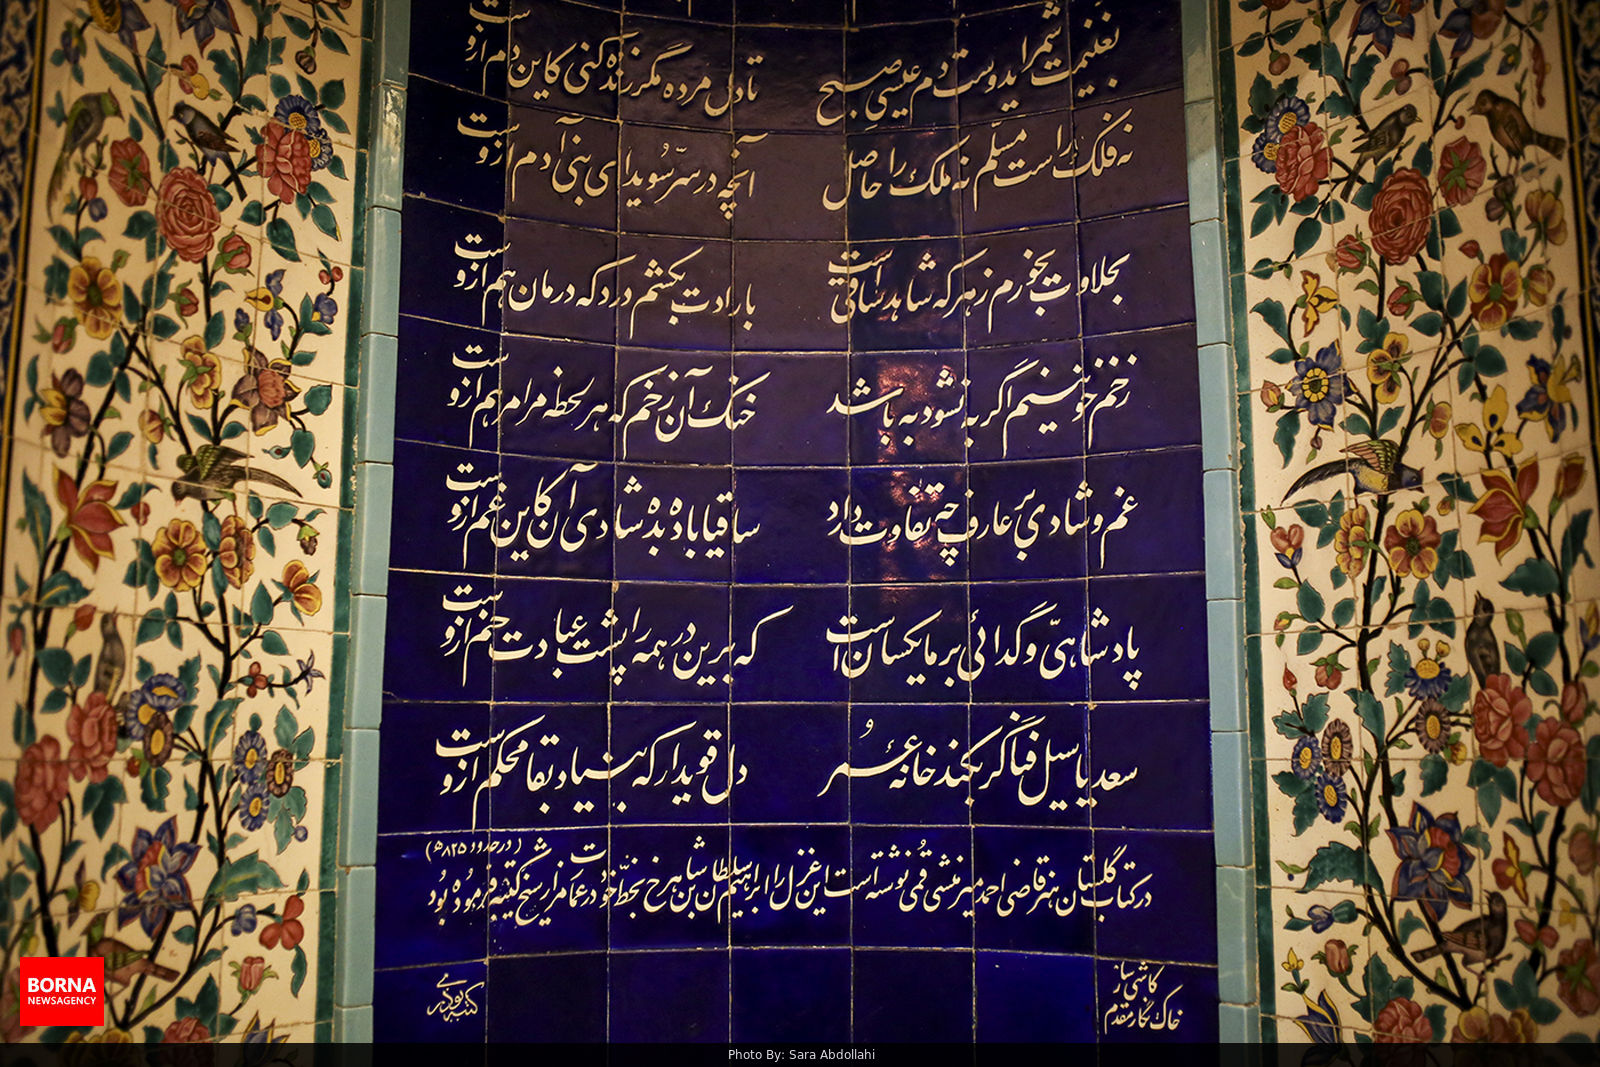 بغنیمت شمر ای دوست دم عیسی صبح تا دل مرده مگر زنده کنی کاین دم ازوست
نه فلک راست مسلّم نه ملک را حاصل آنچه در سرّ سُویدای بنی آدم ازوست
بحلاوت بخورم زهر که شاهد ساقی است بارادت بکشم درد که درمان هم ازوست
زخم خونینم اگر به نشود به باشد خنک آن زخم که هر لحظه مرا مرهم ازوست
غم و شادی بر عارف چه تفاوت دارد ساقیا باده بده شادی آن کاین غم ازوست
پادشاهیّ و گدائی بر ما یکسان است که برین در همه را پشت عبادت خم ازوست
سعدیا سیل فنا گر بکند خانهٔ عمر دل قوی دار که بنیاد بقا محکم ازوست
در کتاب گلستان هنر قاضی احمد میر منشی قمی نوشته است این غزل را ابراهیم سلطان بن شاهرخ بخطّ خود در عمارت مزار شیخ کتیبه فرموده بود (در حدود ۸۲۵ ﻫ)
کاشی ساز
خاک نگار مقدم
BORNA
NEWSAGENCY
Photo By: Sara Abdollahi